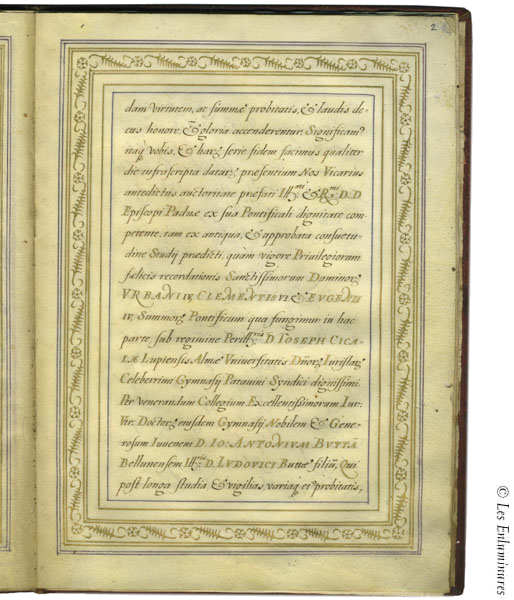 2
dam virtutem, ac summæ probitatis, & laudis de-
cus honore & gloria accenderentur. Significamꝰ
itaq; vobis, & harꝫ serie fidem facimus qualiter
die infrascripta datarꝫ præsentium Nos Vicarius
antedictus auctoritate præfati Ill.mi & R.mi D: D
Episcopi Paduæ ex sua Pontificali dignitate com-
petente, tam ex antiqua, & approbata consuetu-
dine Studij prædicti, quam vigore Priuilegiorum
fælicis recordationis Sanctissimorum Dominorꝫ
VRBANI IV, CLEMENTIS VI & EVGENII
IV, Summorꝫ Pontificum qua fungimur in hac
parte, sub regimine Perill.mi D. IOSEPH CICA-
LÆ Lupiensis Almæ Vniuersitatis Dñorꝫ Iuristarꝫ
Celeberrimi Gymnasij Patauini Syndici dignissimi.
Per venerandum Collegium Excellentissimorum Iur.
Vtr. Doctorꝫ eiusdem Gymnasij Nobilem & Gene-
rosum Iuuenem D. IO: ANTONIVM BVTTÃ
Bellunensem Ill.mi D. LVDOVICI Buttæ filiũ, Qui
post longa studia & vigilias, variaq; et probitatis,
© Les Enluminures